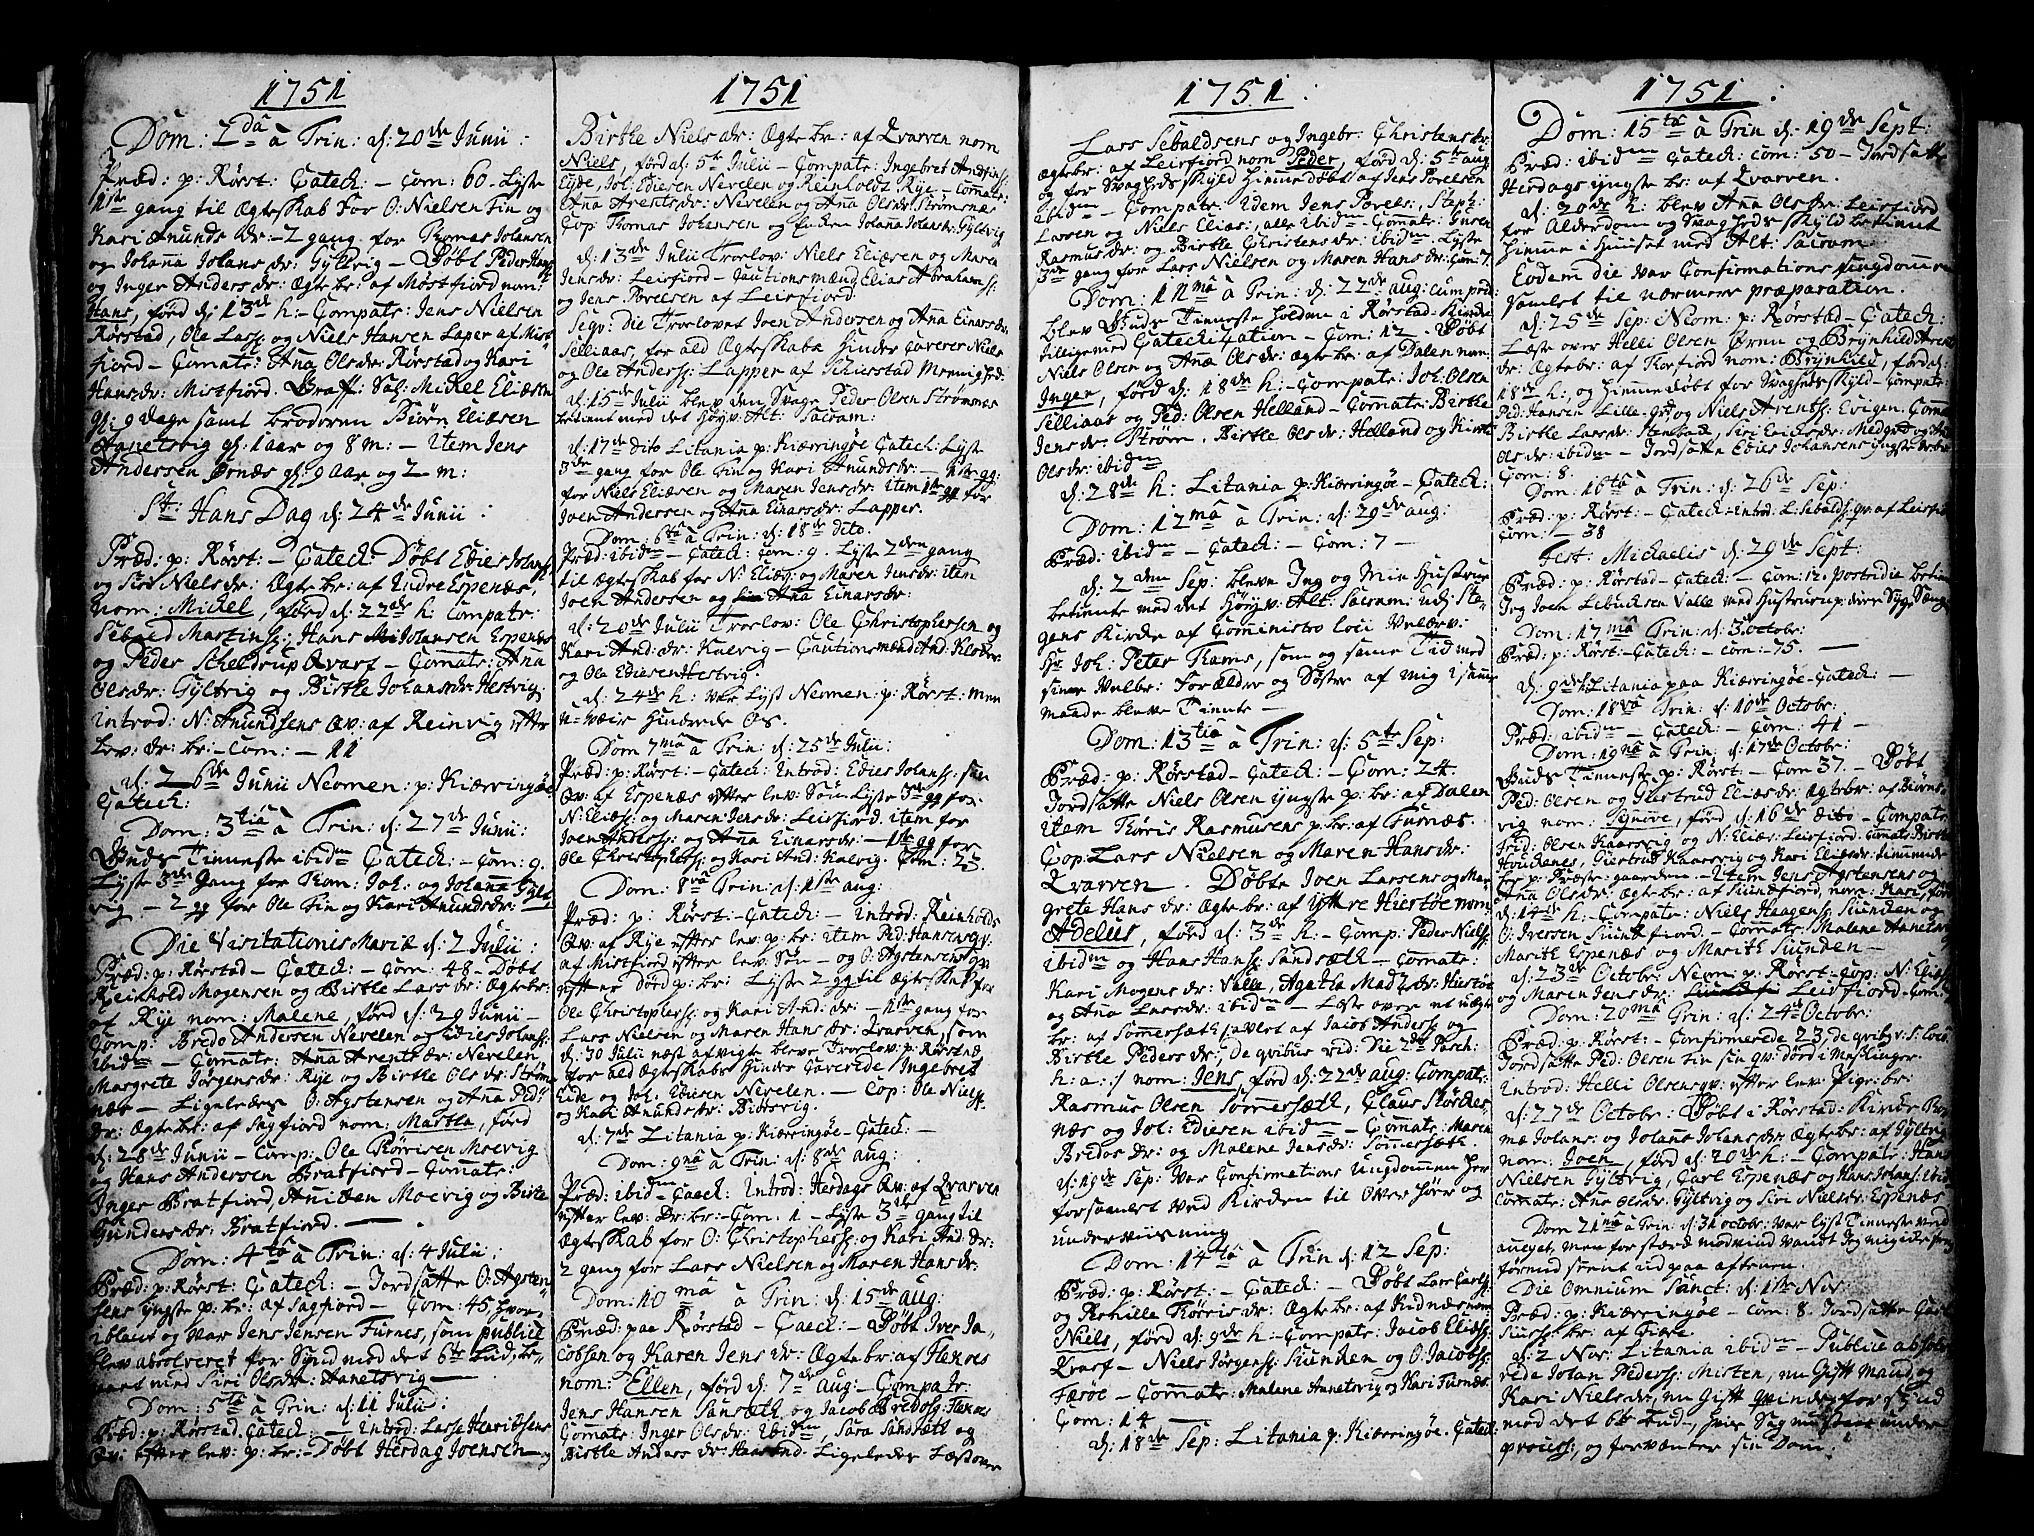 1751
Dom: 2da à Trin: d: 20de Junii:
Præd: p: Rørst: Catech: – Com: 60 – Lyste
1ste gang til Ægteskab for O: Nielsen Fin og
Kari Anunds dr: – 2 gang for Thomas Johansen
og Johanna Johans dr: Gyltvig – Døbt Peder Hans:
og Inger Anders dr: Ægte br: af Mistfiord nom:
Hans, førd d: 13de h: – Compatr: Jens Nielsen
Rørstad, Ole Lars: og Niels Hansen Laper af Mist
fiord – Comatr: Ana Ols dr: Rørstad og Kari
Hans dr: Mistfiord. Begr: Sal: Mickel Eliæsen
gl: 9 Dage samt broderen Biørn Eliæsen
Hanetsvig gl: 1 aar og 8 m: – Item Jens
Andersen Ørnæs gl: 9 Aar og 2 m:
St: Hans Dag d: 24de Junii:
Præd: p: Rørst: – Catech: Døbt Edies Johans:
og Siri Niels dr: Ægte br: af Indre Espenæs,
nom: Mickel, førd d: 22de h: Compatr:
Sebald Martins: Hans Johansen Espenæs
og Peder Scheldrup Qvarf – Comatr: Ana
Ols dr: Gyltvig og Birthe Johans dr: Hestvig
introd: N: Amundsens qv: af Reinvig efter
lev: dr: br: – Com: – 11
d: 26de Junii Neomen: p: Kiærringøe
Catech:
Dom: 3tia à Trin: d: 27de Junii:
Guds Tienneste ibidm Catech: – Com: 9.
Lyste 3de Gang for Thom: Joh: og Johanna Gylt
vig – 2 gg for Ole Fin og Kari Anunds dr:
Die Visitationis Mariæ d: 2 Julii:
Præd: p: Rørstad – Catech: – Com: 48 – Døbt
Reinhold Mogensen og Birthe Lars dr: Ægte br:
af Rye nom: Malene, førd d: 29 Junii –
Comp: Bredo Andersen Nevelen og Edies Johans:
ibidm – Comatr: Ana Arents dr: Nevelen
Margrete Jørgens dr: Rye og Birthe Ols dr: Strøm
næs – Ligeledes O: Agstensen og Ana Ped:
dr: Ægte br: af Sagfiord nom: Martha, førd
d: 28de Junii – Comp: Ole Thørrisen Moevig
og Hans Andersen Bratfiord – Comatr:
Inger Bratfiord, Anitten Moevig og Birte
Gunders dr: Bratfiord. –
Dom: 4ta à Trin: d: 4 Julii:
Præd: p: Rørst: Catech: – Jordsatte O: Agsten
sens yngste p: br: af Sagfiord – Com: 45, hvor-
iblant og var Jens Jensen Furnes, som publice
blev absolveret for Synd mod det 6te bud, be-
gaaet med Siri Ols dr: Hanetsvig –
Dom: 5ta à Trin: d: 11 Julii:
Præd: p: Rørst: Catech: – Introd: Lasse Henrichsens
qv: efter lev: p: br: – Døbt Herdag Joensen og
1751
Birthe Niels dr: Ægte br: af Qvarven nom
Niels, førd d: 5te Julii – Compatr: Ingebret Andfins:
Eyde, Joh: Ediesen Nevelen og Reinholdt Rye – Comatr:
Ana Arents dr: Nevelen og Ana Ols dr: Strømnæs
Cop: Thomas Johansen og Enken Johanna Johans dr: Gyltvig
d: 13de Julii Trorlov: Niels Eliæsen og Maren
Jens dr: Leirfiord – Cautionsmænd Elias Abrahams:
og Jens Povelsen af Leirfiord
Segv: Die Trorlovet Joen Andersen og Ana Einars dr:
Selliaas, for ald Ægteskabs hinder Caverer Niels
og Ole Anders: Lapper af Schierstad Menighed:
d: 15de Julii blev den svage Peder Olsen Strømnæs
betient med det høyv: Alt: Sacram:
d: 17de dito Litania p: Kiærringøe Catech: Lyste
3de gang for Ole Fin og Kari Anunds dr: – 1ste gg:
for Niels Eliæsen og Maren Jens dr: item 1ste gg for
Joen Andersen og Ana Einars dr: Lapper.
Dom: 6ta à Trin: d: 18de dito.
Præd: ibidm – Catech: Com: 9. Lyste 2den gang
til Ægteskab for N: Eliæs: og Maren Jens dr: item
Joen Andersen og Ana Einars dr:
d: 20de Julii Trorlov: Ole Christophersen og
Kari And: dr: Kalvig – Cautionsmænd And: Kloster
og Ole Ediesen Hestvig.
d: 24de h: var Lyst Neomen: p: Rørst: men
u-veir hindrede os.
Dom 7ma à Trin: d: 25de Julii:
Præd: p: Rørst: – Catech: Introd: Edies Johans: sin
Qv: af Espenæs efter lev: Søn. Lyste 3de gg for
N: Eliæs: og Maren Jens dr: Leirfiord. item for
Joen Anders: og Ana Einars dr: – 1ste gg for
Ole Christophers: og Kari And: Kalvig. Com: 23.
Dom: 8va à Trin: d: 1ste aug:
Præd: p: Rørst: – Catech: – introd: Reinholds
Qv: af Rye efter lev: p: br: item Ped: Hansens qv:
af Mistfiord efter lev: Søn – og O: Agstensens qv
efter død p: br: Lyste 2 gg til Ægteskab for
Ole Christophers: og Kari And: dr: – 1ste gang for
Lars Nielsen og Maren Hans dr: Qvarven, som
d: 30 Julii næst afvigte bleve Trorlov: p: Rørstad
for ald Ægteskabs hinder Caverede Ingebret
Eide og Joh: Ediesen Nevelen. – Cop: Ole Niels:
og Kari Anunds dr: Biørsvig.
d: 7de Litania p: Kiærringøe – Catech: –
Dom: 9na à Trin: d: 8de aug:
Præd: ibidm – Catech: Introd: Herdags Qv: af Qvarven
efter lev: Dr: br: – Com. 1 – Lyste 3de gang til
Ægteskab for O: Christophers: og Kari And: dr:
2 gang for Lars Nielsen og Maren Hans dr:
Dom: 10ma à Trin: d: 15de aug:
Præd: paa Rørstad – Catech: – Døbt Iver Ja-
cobsen og Karen Jens dr: Ægte br: af Hernes
nom: Ellen, førd d: 7de aug: – Compatr:
Jens Hansen Sansæth og Jacob Bredes: Hernes
Comatr: Inger Ols dr: ibidm, Sara Sandsæth og
Birthe Anders dr: – Ligeledes Læst over
1751:
Lars Sebaldsens og Ingebr: Christens dr:
Ægte br: af Leirfiord nom Peder, førd d: 5te aug
og for Svagheds skyld himme døbt af Jens Povelsen
ibidm – Compatr: Idem Jens Povels:, Steph:
Larsen og Niels Elias:, alle ibidm – Comatr: Guren
Rasmus dr: og Birthe Christens dr: ibidm – Lyste
3de gang for Lars Nielsen og Maren Hans dr: Com: 7.
Dom: 11ma à Trin: d: 22de aug: cum præd:
blev Guds Tienneste holden i Rørstad-Kirke
tilligemed Catechization – Com: 12 – Døbt
Niels Olsen og Ana Ols dr: Ægte br: af Dalen nom:
Inger, førd d: 18de h: – Compatr: Joh: Olsen
Selliaas og Ped: Olsen Helland – Comatr: Birthe
Jens dr: Strøm, Birthe Ols dr: Helland og Kirsti
Ols dr: ibidm
d: 28de h: Litania p: Kiærringøe – Catech:
Dom: 12ma à Trin: d: 29de aug:
Præd: ibidm – Catech: – Com: 7 –
d: 2den Sep: bleve Jeg og Min Hustrue
betiente med det høyv: Alt: Sacram: udj Ste-
gens Kirke af Comministro loci Velærv:
Hr Joh: Peter Thams, som og samme Tid med
sine Velbr: Forældre og Søster af mig i samme
maade bleve Tiente –
Dom: 13tia à Trin: d: 5te Sep:
Præd: p: Rørstad – Catech: – Com: 24.
Jordsatte Niels Olsen yngste p: br: af Dalen
item Thøris Rasmusens p: br: af Furnæs.
Cop: Lars Nielsen og Maren Hans dr:
Qvarven. Døbte Joen Larsens og Mar
grete Hans dr: Ægte br: af Yttre Hiertøe nom
Adelus, førd d: 3de h: – Comp: Peder Niels:
ibidm og Hans Hans: Sandsæth – Comatr:
Kari Mogens dr: Valle, Agatha Mads dr: Hiertøe
og Ana Lars dr: ibidm – Læste over et uægte
br: af Sommersæth avlet af Jacob Anders: og
Birthe Peders dr:, de qvibus vid: Die 2de Pasch:
h: a:/ nom: Jens, førd d: 22de aug: Compatr:
Rasmus Olsen Sommersæth, Claus Størkes
næs og Joh: Ediesen ibidm – Comatr: Maren
Bredes dr: og Malene Jens dr: Sommersæth
d: 11te Sep: var Confirmations Ungdommen her
forsamlet ved Kirken til Overhørr og
underviisning
Dom: 14ta à Trin d: 12 Sep:
Præd: p: Rørst: – Catech: – Døbt Lars Carls:
og Pernille Thørris dr: Ægte br: af Kidnæs nom
Niels, førd d: 9de h: – Compatr: Jacob Elias:
Qvarf – Niels Jørgens: Siunden og O: Jacobs:
Færøe – Comatr: Malene Annetsvig og Kari Furnæs.
Com: 14
d: 18de Sep: Litania p: Kiærringøe. Catech:
1751:
Dom: 15ta à Trin d: 19de Sept:
Præd: ibidm Catech: Com: 50 – Jordsatte
Herdags yngste br: af Qvarven.
d: 20de h: blev Ana Ols dr: Leirfiord
for Alderdom og Svagheds skyld betient
himme i huuset med Alt: Sacram:
Eodem die var Confirmations ungdommen
samlet til nærmere præparation.
d: 25de Sep: Neom: p: Rørstad – Catech:
Læste over Helli Olsen Ørnn og Brynhild Arent
dr: Ægte br: af Torfiord nom: Brynhild, førd d:
18de h:, og himme døbt for Svagheds skyld – Compatr:
Ped: Hansen Lille-gaard og Niels Arents: Evigen. Comatr:
Birthe Lars dr: Stensæd, Siri Erichs dr: og Ana
Ols dr: ibidm – Jordsatte Edies Johansens yngste dr: br:
Com: 8.
Dom: 16ta à Trin: d: 26de Sep:
Præd: p: Rørst: – Catech: – Introd: L: Sebalds: qv: af Leirfio
Com: – 38
Fest: Michaelis d: 29de Sept:
Præd: p: Rørstad – Catech: – Com: 12. Postridie betien
Jeg Joen Lebucksen Valle med Hustrue p: deres Syge Seng
Dom: 17ma Trin: d: 3 Octobr:
Præd: p: Rørst: – Catech: – Com: – 75. –
d: 9de h: Litania paa Kiærringøe – Catech: –
Dom: 18va Trin: d: 10de Octobr:
Præd: ibidm – Catech: – Com: 41 –
Dom: 19na à Trin: d: 17de Octobr:
Guds Tienneste p: Rørst: – Com 37. – Døbt
Ped: Olsen og Giertrud Eliæs dr: Ægte br: af Biørns
vig nom: Signore, førd d: 16de dito – Compatr:
Frid: Olsen Kaarsvig og N: Eliæs: Leirfiord. Comatr: Birthe
Houckenes, Giertrud Kaarsvig og Kari Elias dr: tienende
her p: Præste-gaarden – Item Jens Agstensens og
Ana Ols dr: Ægte br: af Siunkfiord, nom: Kari, førd
d: 14de h: – Compatr: Niels Haagens: Siunden og
O: Iversen Siunkfiord. – Comatr: Malene Annetsvig
Marith Espenæs og Marith Siunden –
d: 23de Octobr: Neom: p: Rørst: – Cop: N: Eliæs:
og Maren Jens dr: Leirfiord – Com:
Dom: 20ma Trin: d: 24de Octobr:
Præd: p: Rørst: – Confirmerede 23, de qvibus v: s: loco
Jordsatte Ped: Olsen Fin sin qv: død i Meslinger.
introd: Helli Olsens qv: efter lev: Pige: br:
d: 27de Octobr: Døbt i Rørstad: Kirke Tho
mæ Johans: og Johana Johans dr: Ægte br: af Gyltvig
nom: Joen, førd d: 20de h: – Compatr: Hans
Nielsen Gyltvig, Carl Espenæs og Hans Johans: ibid
Comatr: Ane Ols dr: Gyltvig og Siri Niels dr: Espenæs
Dom 21ma à Trin: d: 31 octobr: var lyst Tienneste ved
aneyet, men for stærk modvind vandt Jeg mig icke frem
førend seent ud paa aftenen.
Die Omnium Sanct: d: 1ste Nov:
Præd: p: Kiærringøe – Com: 8. Jordsatte Carl
Siurss: br: af Fiære.
d: 2 Nov: Litania ibidm – Publicè absolv
rede Johan Peders: Misten, nu Gift Mand og
Kari Niels dr: nu Gift qvinde, for Synd
mod det 6te bud –, hvor Sig under
process:, og forventer sin Dom.